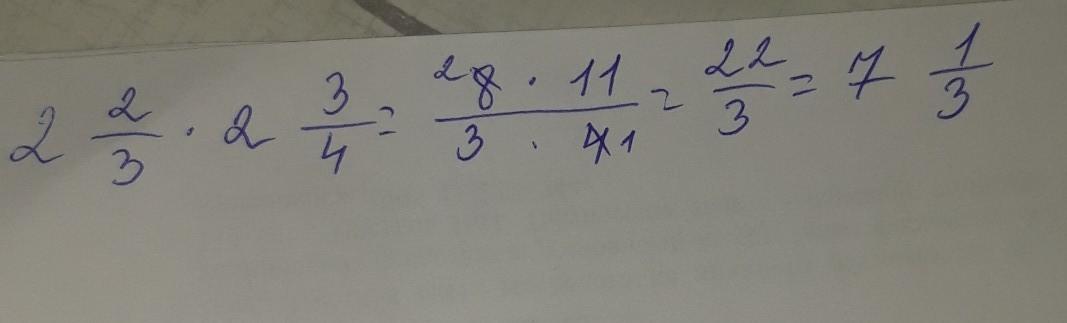 2 2/3 · 2 3/4 = 28 · 11 / 3 · 41 = 22/3 = 7 1/3